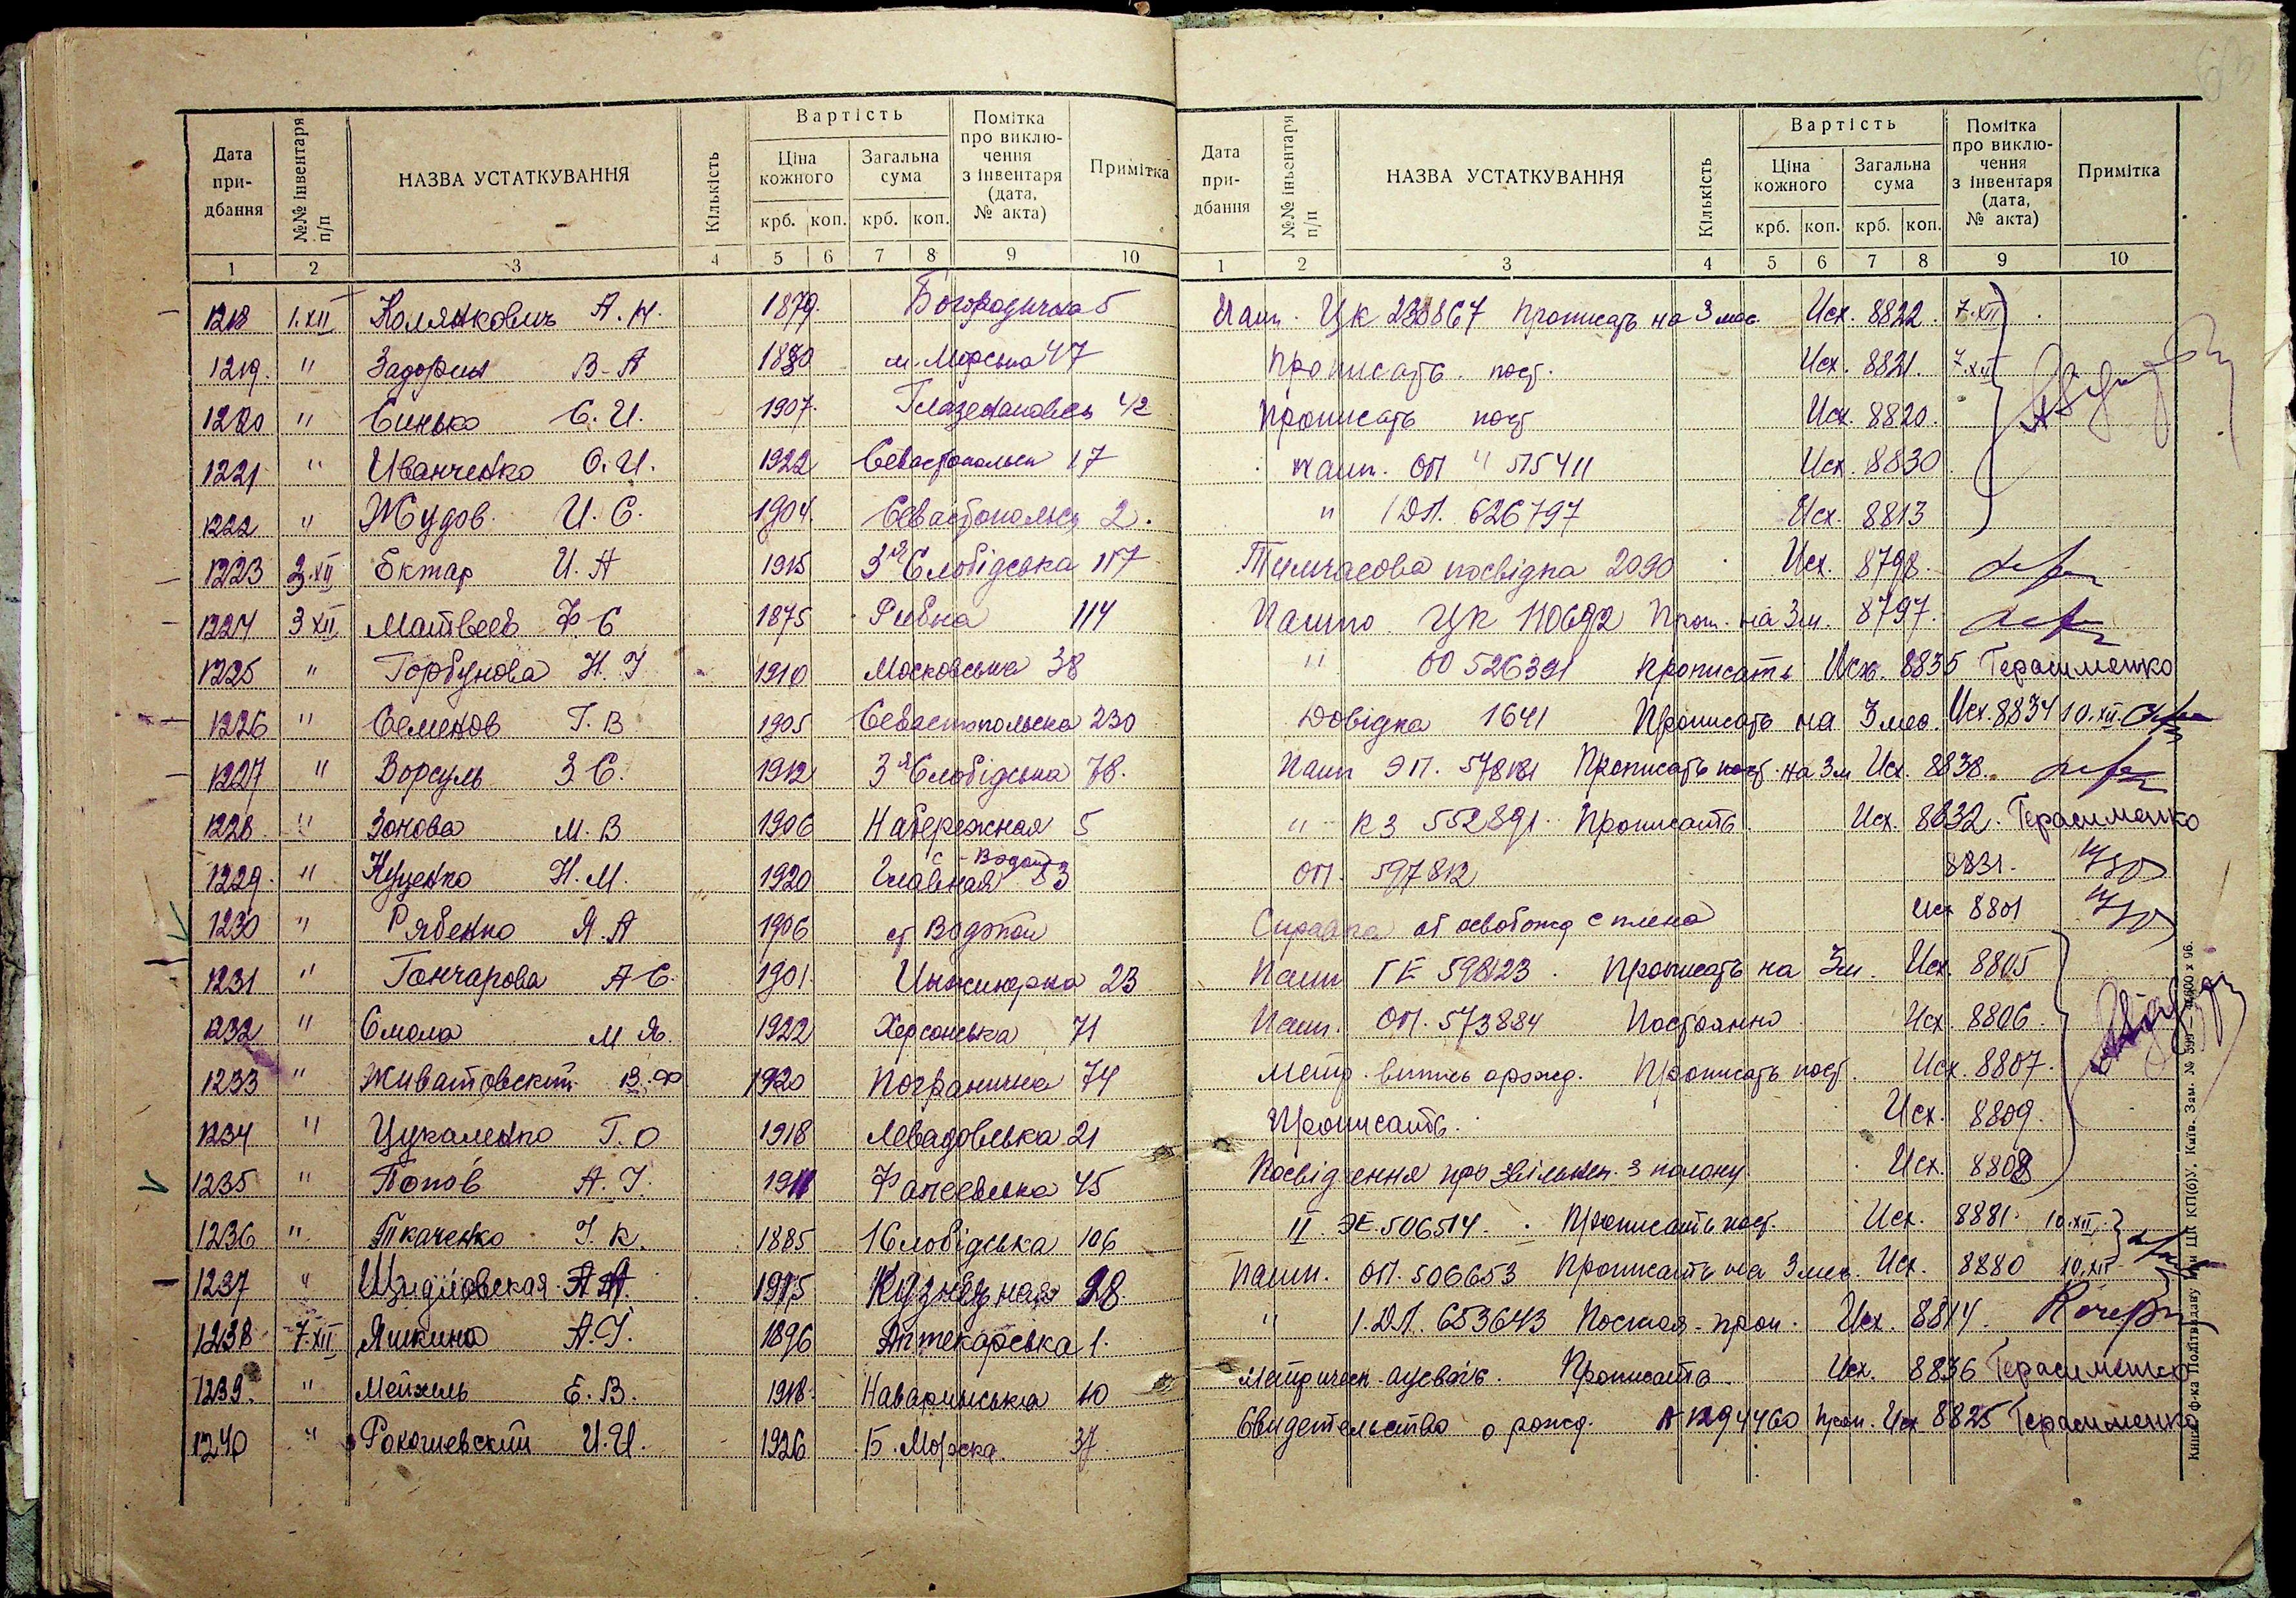 Дата придбання №№ інвентаря п/п НАЗВА УСТАТКУВАННЯ Кількість Вартість Ціна кожного крб. коп. Загальна сума крб. коп. Помітка про виключення з інвентаря (дата, № акта) Примітка
1 2 3 4 5 6 7 8 9 10
1218 1.XII А. Н. 1879. 5
1219. " Задорин В-А 1880 м. Морська 47
1220 " Синько С. И. 1907. 42
1221 " Иванченко О. И. 1922 Севастопольск 17
1222 " Жудов. И. С. 1904. Севастопольск 2.
1223 2.XII Ектар И. А 1915 3я Слобідська 117
1224 3 XII Матвеев Ф. С 1875 Рибна 114
1225 " Горбунова Н. І 1910 Московська 38
1226 " Семенов Г. В 1905 Севастопольска 230
1227 " Ворсуль З. С. 1912 3я Слобідська 78.
1228 " Зонова М. В 1906 Набережная 5
1229. " Куценко Н. М. 1920 Главная 83
1230 " Рябенко Я. А 1906 ст Водопой
1231 " Гончарова А С. 1901. 23
1232 " Смола М Я. 1922 Херсонська 71
1233 " Живатовский В. Ф 1920 Погранична 74
1234 " Цукаленко Г. О 1918 Левадовська 21
1235 " Попов А. І. 1911 Фалеевська 45
1236 " Ткаченко І. К. 1885 1 Слобідська 106
1237 " А. 1915 Кузнечная 28.
1238 7.XII Яшкина А. І. 1896 Аптекарська 1.
1239. " Мейхель Е. В. 1918. Наваринська 10
1240 " И. И. 1926 Б. Морска 37
Дата придбання №№ інвентаря п/п НАЗВА УСТАТКУВАННЯ Кількість Вартість Ціна кожного крб. коп. Загальна сума крб. коп. Помітка про виключення з інвентаря (дата, № акта) Примітка
1 2 3 4 5 6 7 8 9 10
Пасп. ЦК Прописать на 3 мес. Исх. 8822. 7.XII
Прописать. пост. Исх. 8821. 7.XII
Прописать пост Исх. 8820.
пасп. ОП 515411 Исх. 8830
" 1 ДЛ. 626797 Исх. 8813
Тимчасова посвідка 2090 Исх. 8798.
ЦК 110692 Проп. на 3 м. 8797.
" ОО 526391 Прописать Исх. 8835 Герасименко
Довідка 1641 Прописать на 3 мес. Исх. 8834 10.XII.
Пасп ЭП. Прописать пост. на 3 м Исх. 8838.
" КЗ 552891. Прописать. Исх. 8832. Герасименко
ОП. 597812 8831.
Справка об освобожд с плена Исх 8801
Пасп ГЕ 598123. Прописать на 3 м. Исх. 8805
Пасп. ОП. 573884 Постоянно Исх. 8806.
Метр. Прописать пост. Исх. 8807.
Прописать. Исх. 8809.
Посвідчення про звільнен. з полону Исх. 8808
П. ЭЕ. 506514. Прописать пост. Исх. 8881. 10.XII.
Пасп. ОП. 506653 Прописать на 3 мес. Исх. 8880 10.XII
" 1. ДЛ. 653643 проп. Исх. 8814.
Прописать. Исх. 8836 Герасименко
Свидетельство о рожд. 1294460 проп. Исх 8825 Герасименко